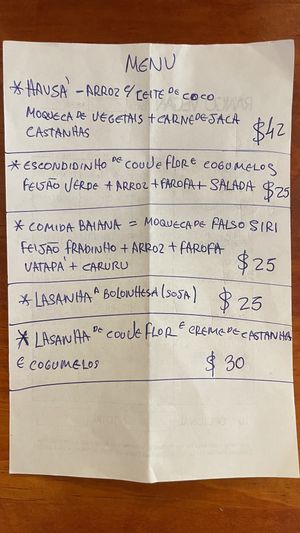 MENU
* HAUSÁ - ARROZ C/ LEITE DE COCO
MOQUECA DE VEGETAIS + CARNE DE JACA
CASTANHAS $42
* ESCONDIDINHO DE COUVE FLOR E COGUMELOS
FEIJÃO VERDE + ARROZ + FAROFA + SALADA $25
* COMIDA BAIANA = MOQUECA DE FALSO SIRI
FEIJÃO FRADINHO + ARROZ + FAROFA
VATAPÁ + CARURU $25
* LASANHA A BOLONHESA (SOJA) $25
* LASANHA DE COUVE FLOR E CREME DE CASTANHA
E COGUMELOS $30